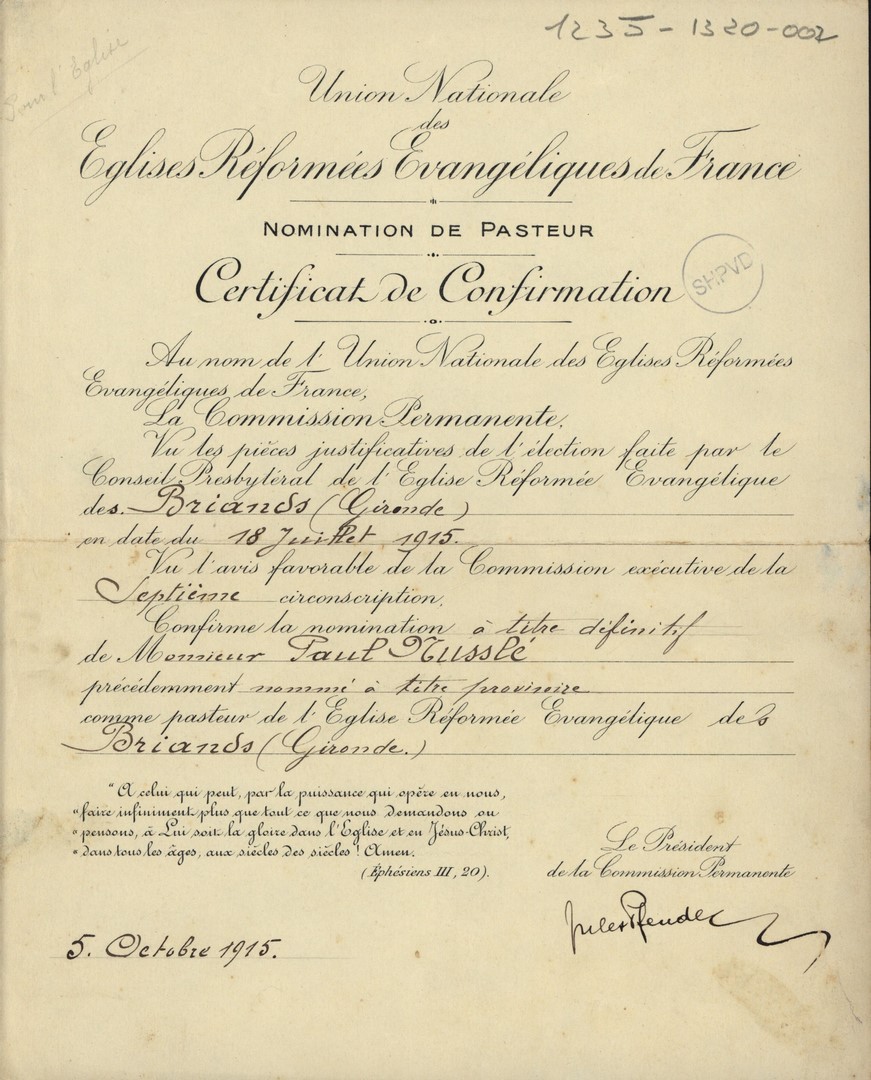 1235-1320-002
Pour l'Eglise
Union Nationale
des
Eglises Réformées Evangéliques de France
NOMINATION DE PASTEUR
Certificat de Confirmation
SHPVD
Au nom de l'Union Nationale des Eglises Réformées
Evangéliques de France,
La Commission Permanente,
Vu les pièces justificatives de l'élection faite par le
Conseil Presbytéral de l'Eglise Réformée Evangélique
des Briands (Gironde)
en date du 18 Juillet 1915.
Vu l'avis favorable de la Commission exécutive de la
Septième circonscription,
Confirme la nomination à titre définitif
de Monsieur Paul Nusslé
précédemment nommé à titre provisoire
comme pasteur de l'Eglise Réformée Evangélique des
Briands (Gironde.)
"A celui qui peut, par la puissance qui opère en nous,
"faire infiniment plus que tout ce que nous demandons ou
"pensons, à Lui soit la gloire dans l'Eglise et en Jésus-Christ,
"dans tous les âges, aux siècles des siècles ! Amen.
(Éphésiens III, 20).
Le Président
de la Commission Permanente
Jules Pfender
5. Octobre 1915.